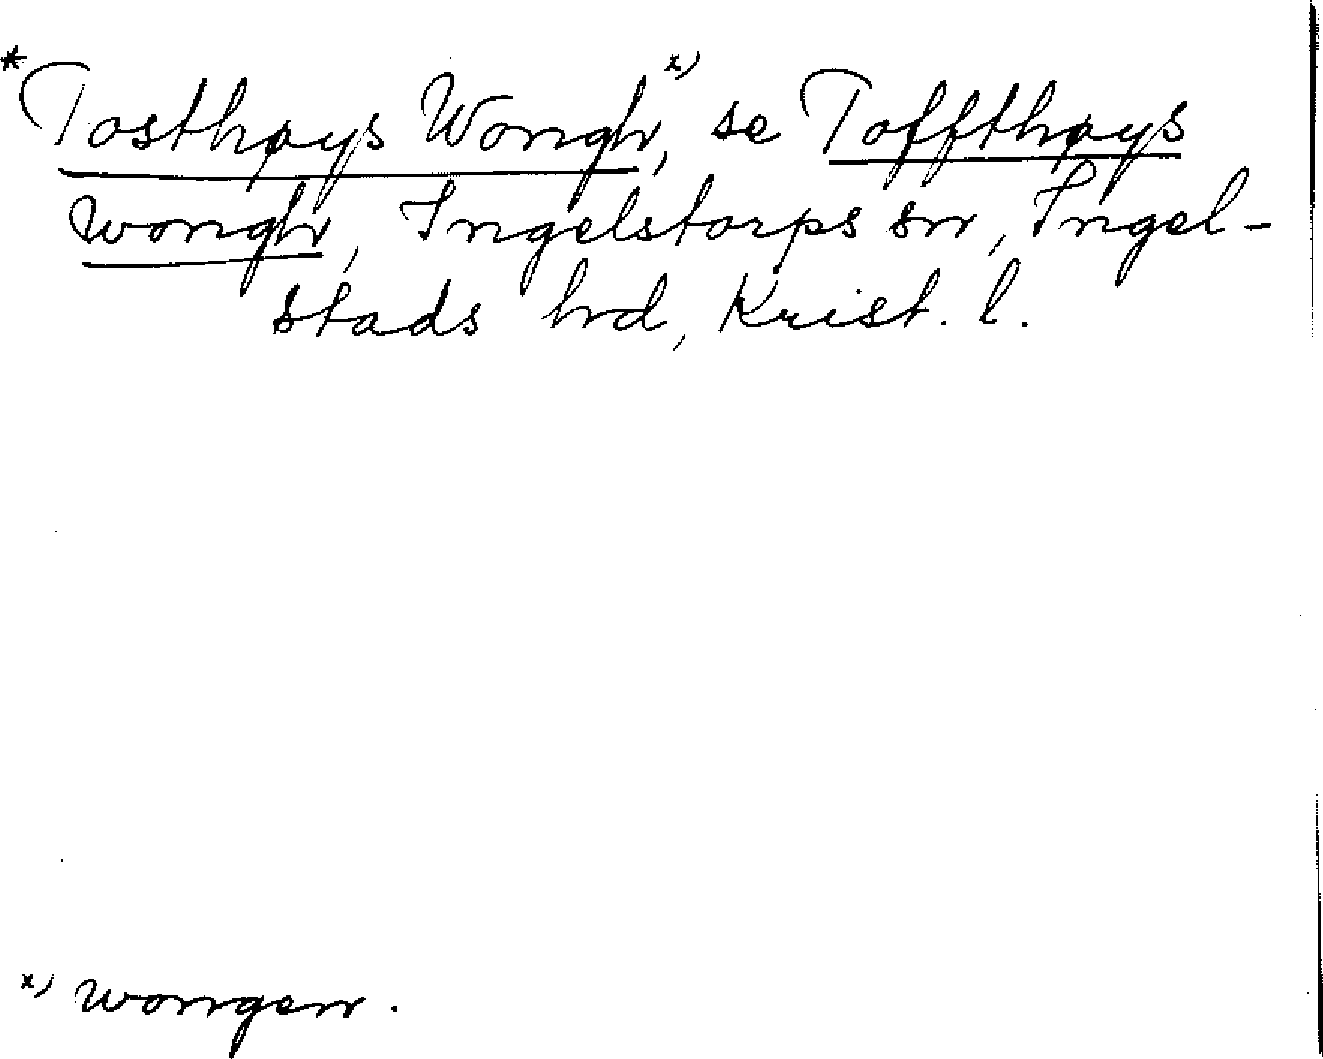 *Tosthøys Wongh, x) se Toffthøys
wongh, Ingelstorps sn, Ingel-
stads hrd, Krist. l.
x) wongen.